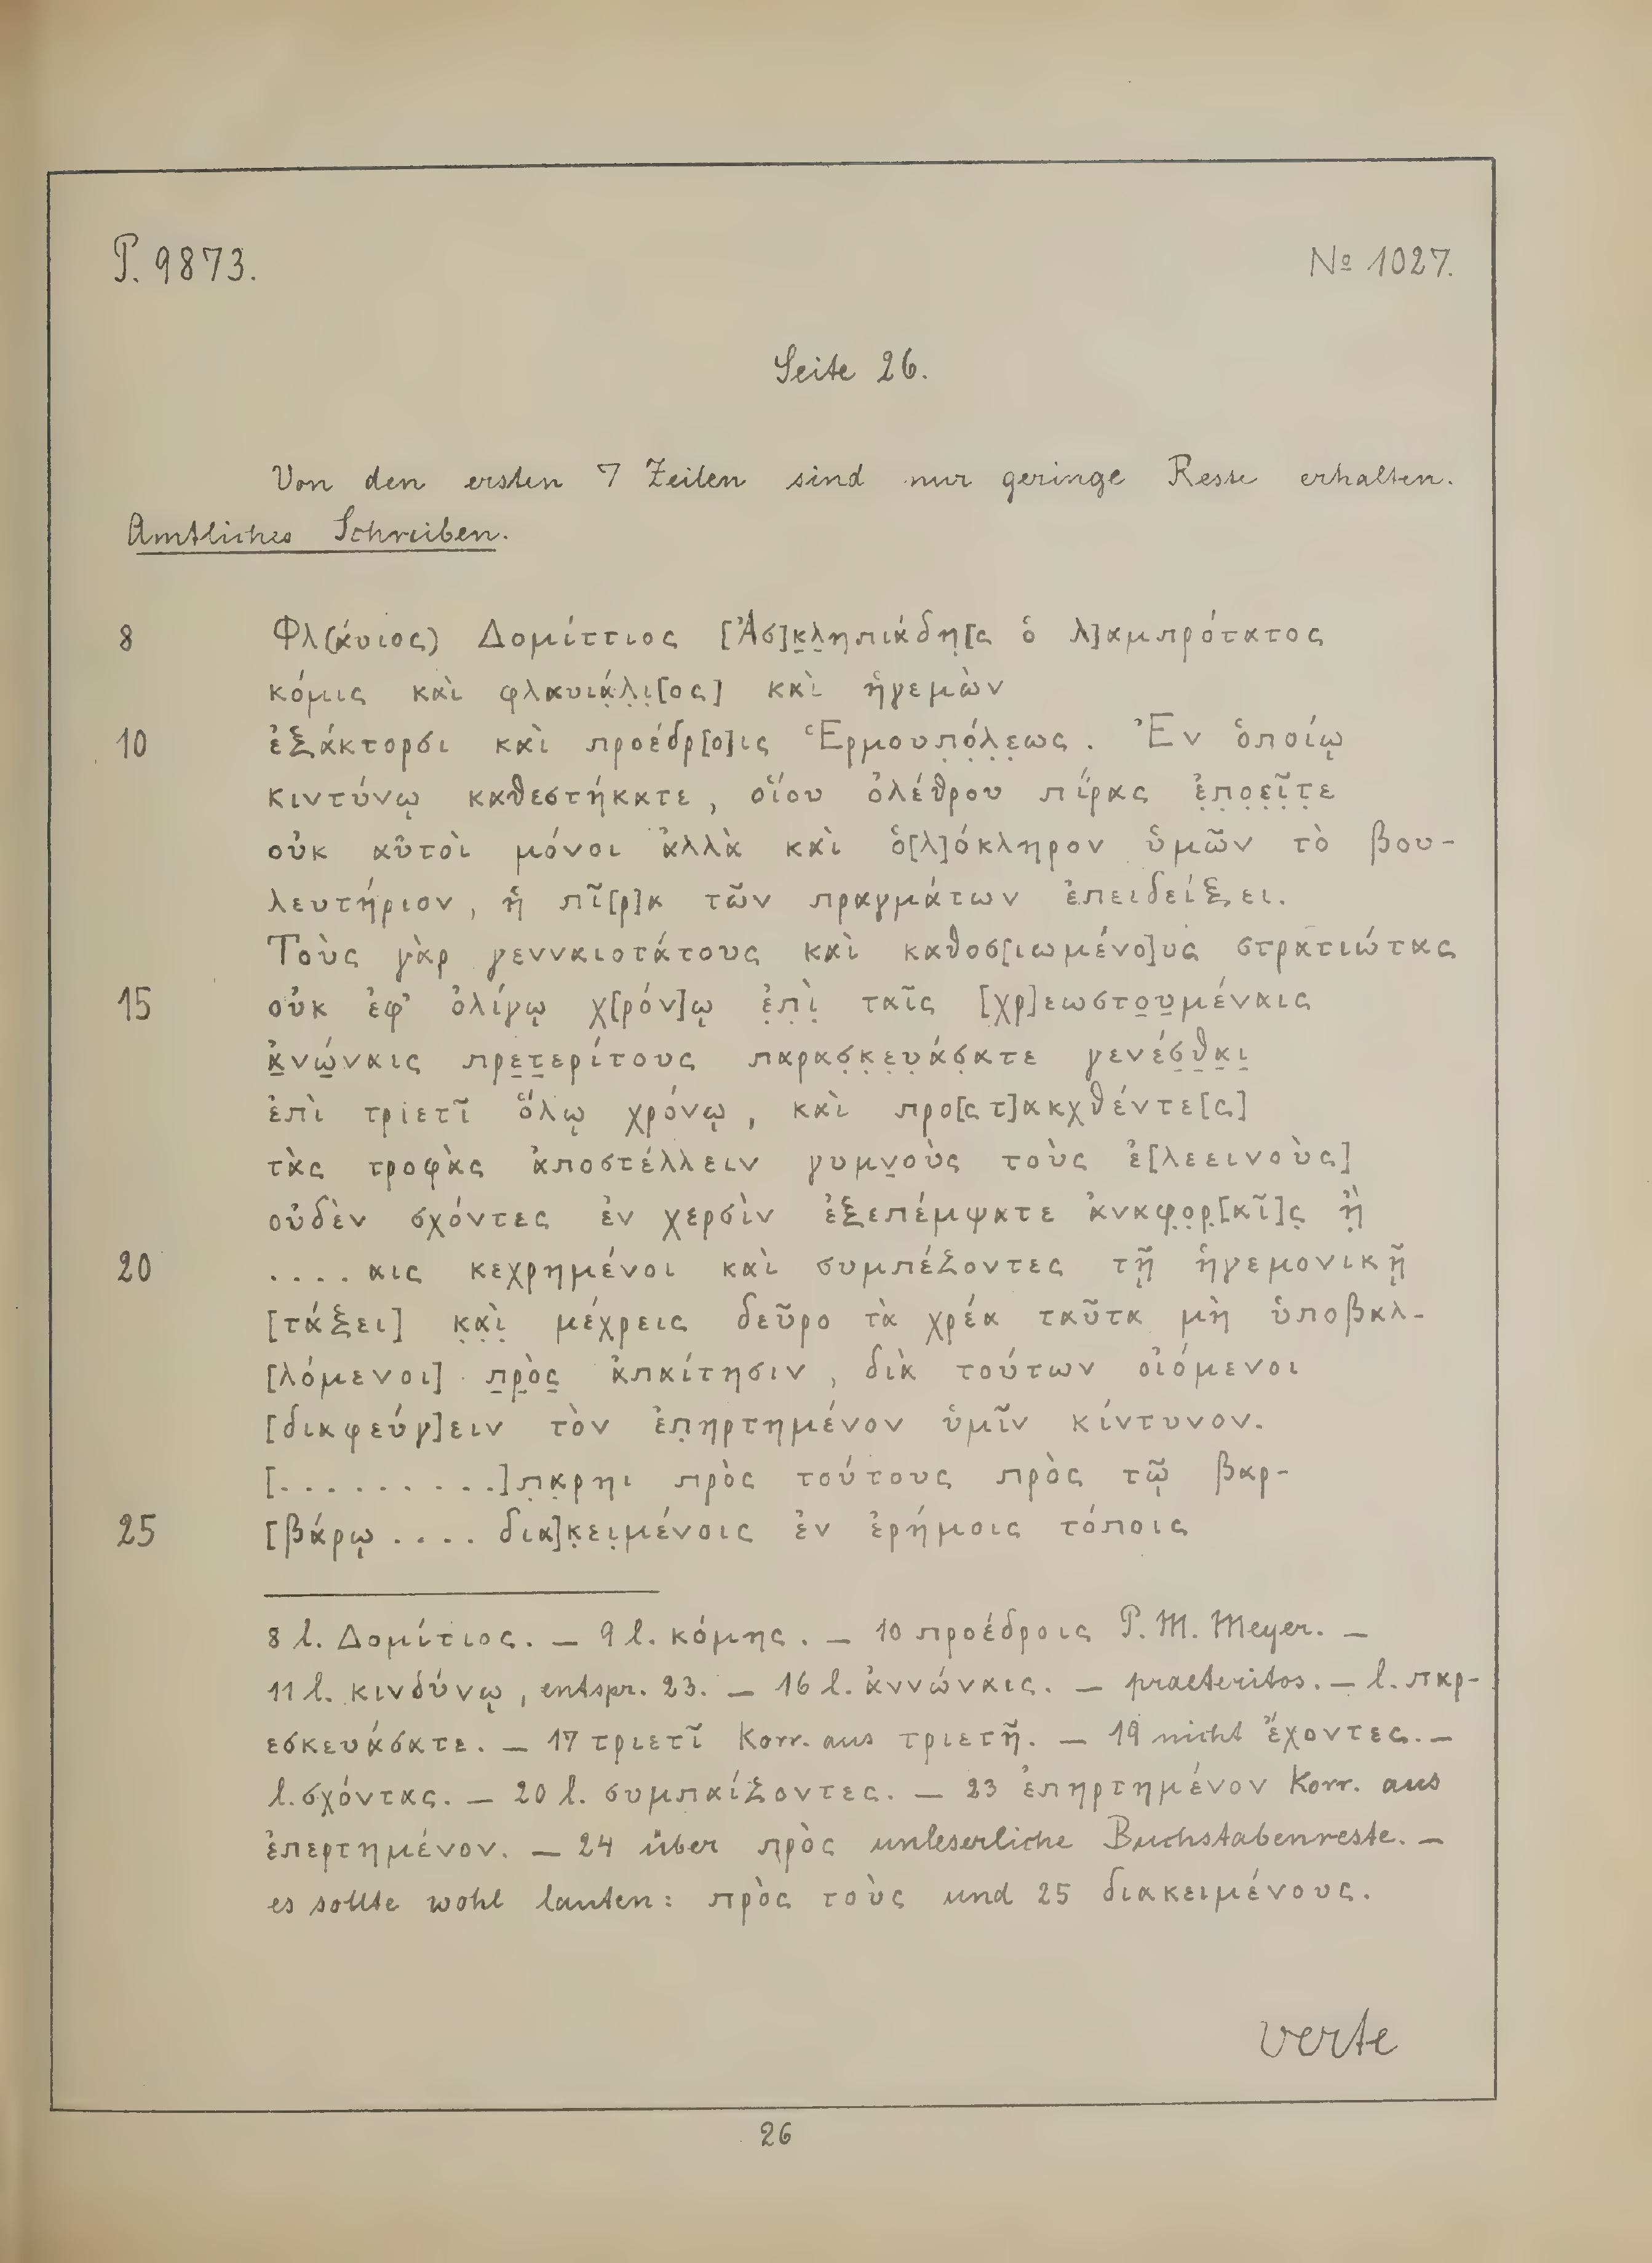 P. 9873.
№ 1027.
Seite 26.
Von den ersten 7 Zeilen sind nur geringe Reste erhalten.
Amtliches Schreiben.
8 Φλ(άυιος) Δομίττιος [Ἀσ]κ̣λ̣ηπιάδη̣[ς ὁ λ]αμπρότατος
κόμις καὶ φλαυιά̣λ̣ι̣[ος] καὶ ἡγεμὼν
10 ἐξάκτορσι καὶ προέδρ[ο]ις Ἑρμουπ̣ό̣λ̣ε̣ως. Ἐν ὁποίῳ
κιντύνῳ καθεστήκατε, οἵου ὀλέθρου πίρας ἐ̣π̣ο̣ε̣ῖ̣τ̣ε
οὐκ αὐτοὶ μόνοι ἀλλὰ καὶ ὁ[λ]όκληρον ὑμῶν τὸ βου-
λευτήριον, ἡ πῖ[ρ]α τῶν πραγμάτων ἐπειδείξει.
Τοὺς γὰρ γενναιοτάτους καὶ καθοσ[ιωμένο]υς στρατιώτας
15 οὐκ ἐφ’ ὀλίγῳ χ[ρόν]ῳ ἐ̣π̣ὶ̣ ταῖς [χρ]εωστο̣υ̣μέναις
ἀ̣νώ̣ναις πρε̣τ̣ερίτους παρασ̣κ̣ε̣υ̣άσ̣ατε γενέσ̣θ̣α̣ι̣
ἐπὶ τριετῖ ὅλῳ χρόνῳ, καὶ προ[στ]ακχθέντε[ς]
τὰς τροφὰς ἀποστέλλειν γυμν̣οὺς τοὺς ἐ[λεεινοὺς]
οὐδὲν σχόντες ἐν χερσὶν ἐξεπέμψατε ἀναφ̣ο̣ρ̣[αῖ]ς̣ ἢ̣
20 ....αις κεχρημένοι καὶ συμπέζοντες τῇ ἡγεμονικῇ
[τάξει] κ̣α̣ὶ̣ μέχρεις δεῦρο τὰ χρέα ταῦτα μὴ ὑποβαλ-
[λόμενοι] π̣ρ̣ὸ̣ς̣ ἀπαίτησιν, διὰ τούτων οἰόμενοι
[διαφεύγ]ειν τὸν ἐπ̣ηρτημένον ὑμῖν κίντυνον.
[..........]π̣α̣ρηι πρὸς τούτους πρὸς τῷ βαρ-
25 [βάρῳ .... δια]κ̣ει̣μένοις ἐν ἐρήμοις τόποις
8 l. Δομίτιος. – 9 l. κόμης. – 10 προέδροις P. M. Meyer. –
11 l. κινδύνῳ, entspr. 23. – 16 l. ἀννώναις. – praeteritos. – l. παρ-
εσκευάσατε. – 17 τριετῖ Korr. aus τριετῆ. – 19 nicht ἔχοντες. –
l. σχόντας. – 20 l. συμπαίζοντες. – 23 ἐπηρτημένον Korr. aus
ἐπερτημένον. – 24 über πρὸς unleserliche Buchstabenreste. –
es sollte wohl lauten: πρὸς τοὺς und 25 διακειμένους.
verte
26